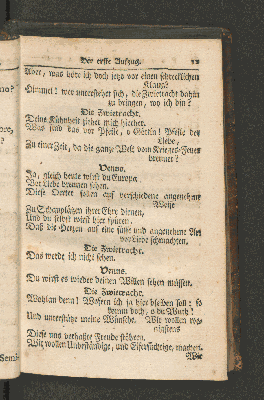 Der erste Aufzug. 11
Aber, was höre ich doch jetzo vor einen schrecklichen
Klang?
Himmel! wer unterstehet sich, die Zwietracht dahin
zu bringen, wo ich bin?
Die Zwietracht.
Deine Kühnheit ziehet mich hierher.
Was sind das vor Pfeile, o Göttin! Pfeile der
Liebe,
Zu einer Zeit, da die ganze Welt vom Krieges-Feuer
brennet?
Venus.
Ja, gleich heute wirst du Europa
Vor Liebe brennen sehen.
Diese Oerter sollen auf verschiedene angenehme
Weise
Zu Schauplätzen ihrer Ehre dienen,
Und du selbst wirst hier spüren,
Daß die Herzen auf eine süsse und angenehme Art
vor Liebe schmachten.
Die Zwietracht.
Das werde ich nicht sehen.
Venus.
Du wirst es wieder deinen Willen sehen müssen.
Die Zwietracht.
Wohlan denn! Wofern ich ja hier bleiben soll: so
komm doch, o du Wuth!
Und unterstütze meine Wünsche. Wir wollen wenigstens
Diese uns verhaßte Freude stöhren.
Wir wollen Unbeständige, und Eifersüchtige, machen.
Wie